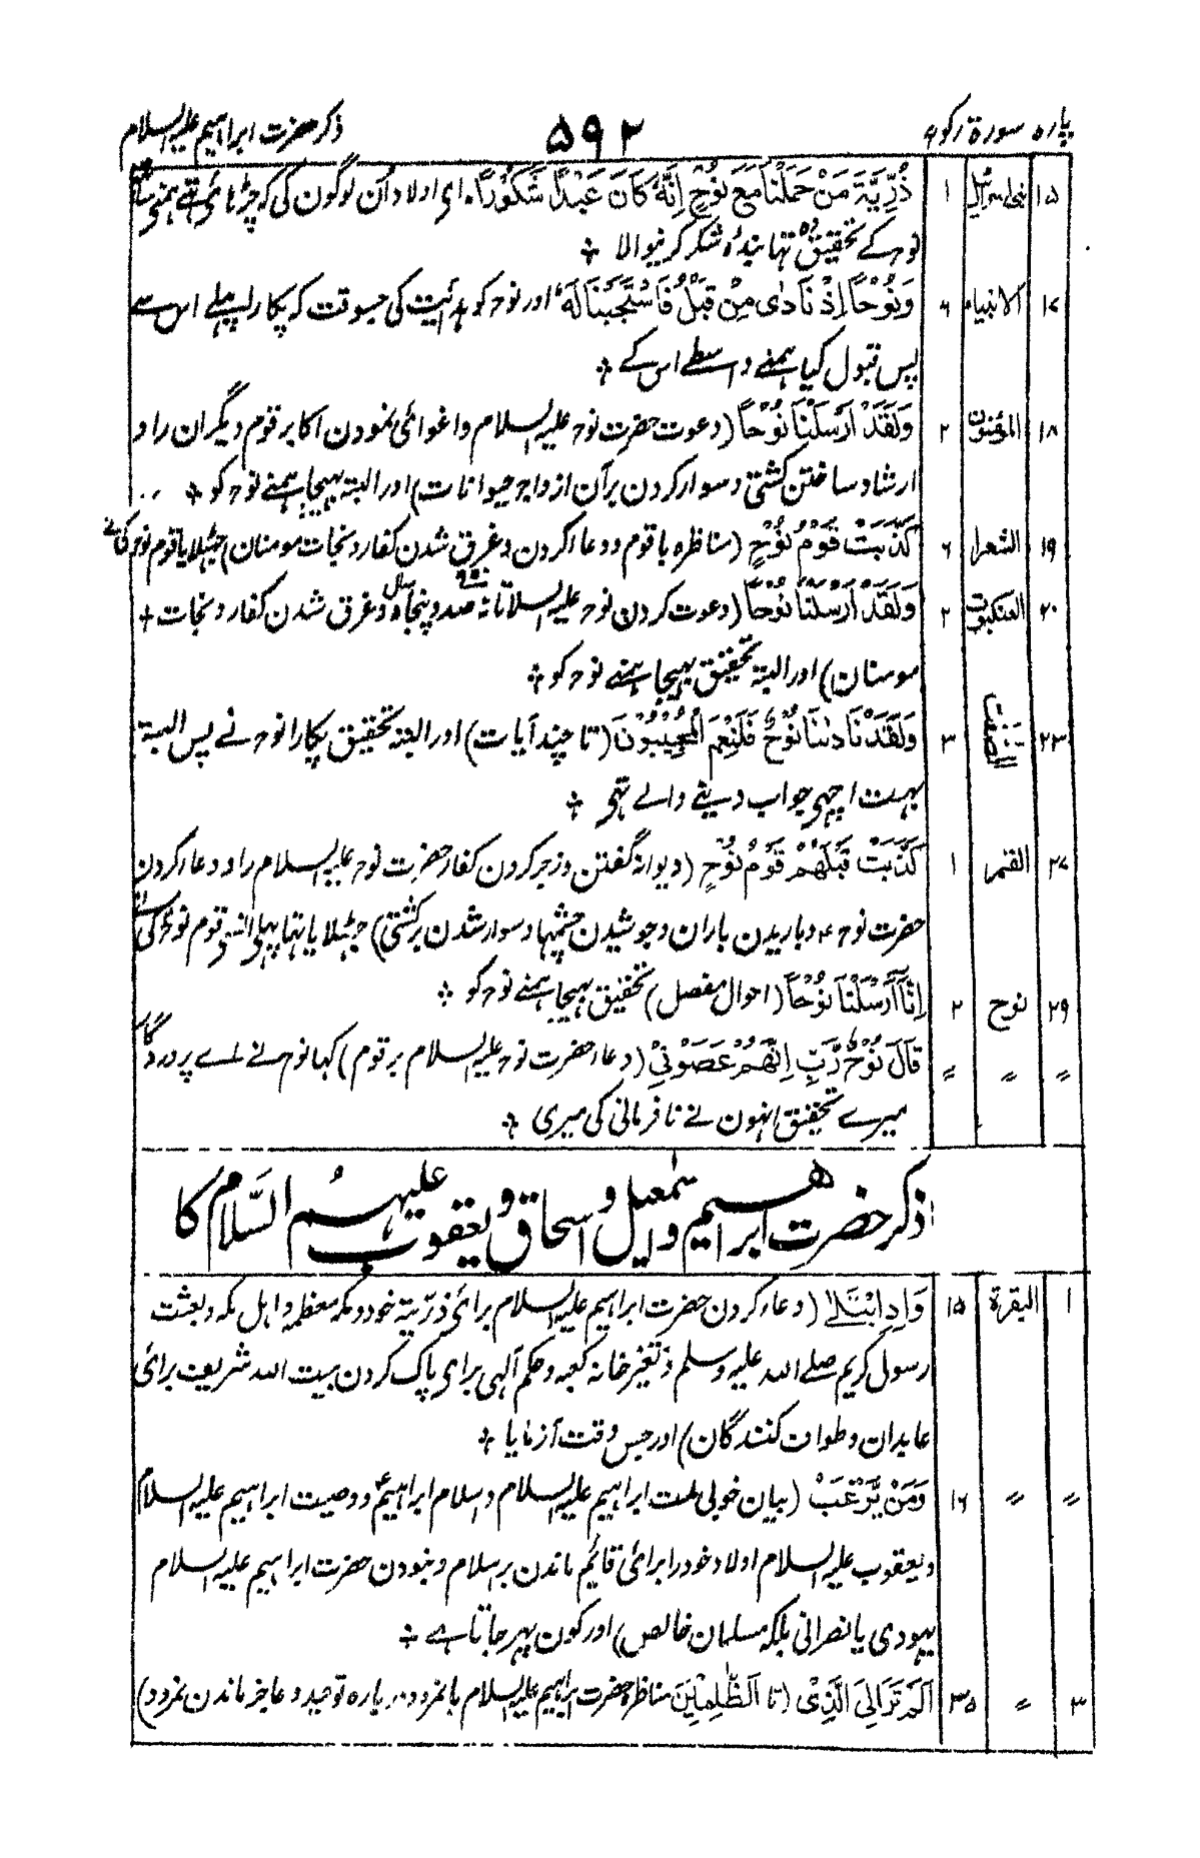 پارہ سورۃ رکوع ۵۹۲ ذکر حضرت ابراہیم علیہ السلام
۱۵ بنی اسرائیل ۱ ذُرِّيَّةَ مَنْ حَمَلْنَا مَعَ نُوْحٍ اِنَّهٗ كَانَ عَبْدًا شَكُوْرًا۔ ای اولاد اُن لوگون کی کہ چڑھائی تھے ہمنے ساتھ
نوح کے تحقیق وہ تہا بندہ شکر کرنیوالا ۔
۱۷ الانبیاء ۶ وَنُوْحًا اِذْ نَادٰى مِنْ قَبْلُ فَاسْتَجَبْنَا لَهٗ اور نوح کو ہدائیت کی جسوقت کہ پکارا پہلے اس سے
پس قبول کیا ہمنے واسطے اس کے ۔
۱۸ المؤمنون ۲ وَلَقَدْ اَرْسَلْنَا نُوْحًا (دعوت حضرت نوح علیہ السلام واغوائی نمودن اکابر قوم دیگران را و
ارشاد ساختن کشتی و سوار کردن برآن ازواج حیوانات) اور البتہ بہیجا ہمنے نوح کو ۔
۱۹ الشعرا ۶ كَذَّبَتْ قَوْمُ نُوْحٍ (مناظرہ با قوم و دعاء کردن و غرق شدن کفار و نجات مومنان) جہٹلایا قوم نوح کی نے
۲۰ العنکبوت ۲ وَلَقَدْ اَرْسَلْنَا نُوْحًا (دعوت کردن نوح علیہ السلام تا نہ صد و پنجاہ سال و غرق شدن کفار و نجات +
مومنان) اور البتہ تحقیق بہیجا ہمنے نوح کو ۔
۲۳ الصّٰفّٰت ۳ وَلَقَدْ نَادٰىنَا نُوْحٌ فَلَنِعْمَ الْمُجِيْبُوْنَ (تا چند آیات) اور البتہ تحقیق پکارا نوح نے پس البتہ
بہت اچہی جواب دینے والے تہی ۔
۲۷ القمر ۱ كَذَّبَتْ قَبْلَهُمْ قَوْمُ نُوْحٍ (دیوانہ گفتن و زجر کردن کفار حضرت نوح علیہ السلام را و دعا کردن
حضرت نوح ع و باریدن باران و جوشیدن چشمہا و سوار شدن بر کشتی) جہٹلایا تہا پہلی انسے قوم نوح کی نے
۲۹ نوح ۲ اِنَّا اَرْسَلْنَا نُوْحًا (احوال مفصل) تحقیق بہیجا ہمنے نوح کو ۔
〃 〃 〃 قَالَ نُوْحٌ رَّبِّ اِنَّهُمْ عَصَوْنِيْ (دعاء حضرت نوح علیہ السلام بر قوم) کہا نوح نے اے پروردگار
میرے تحقیق انہون نے نافرمانی کی میری ۔
ذکر حضرت ابراھیم و اسمٰعیل و اسحاق و یعقوب علیہم السّلام کا
۱ البقرۃ ۱۵ وَاِذِ ابْتَلٰى (دعاء کردن حضرت ابراہیم علیہ السلام برائی ذریّۃ خود و مکہ معظمہ و اہل مکہ و بعثت
رسول کریم صلے اللہ علیہ وسلم و تعمیر خانہ کعبہ و حکم آلہی برای پاک کردن بیت اللہ شریف برائی
عابدان و طواف کنندگان) اور جس وقت آزمایا ۔
〃 〃 ۱۶ وَمَنْ يَّرْغَبُ (بیان خوبی ملت ابراہیم علیہ السلام و اسلام ابراہیمؑ و وصیت ابراہیم علیہ السلام
و یعقوب علیہ السلام اولاد خود را برائی قائیم ماندن بر اسلام و نبودن حضرت ابراہیم علیہ السلام
یہودی یا نصرانی بلکہ مسلمان خالص) اور کون پہر جاتا ہے ۔
۳ 〃 ۳۵ اَلَمْ تَرَ اِلَى الَّذِىْ (تا اَلظّٰلِمِيْنَ مناظرہ حضرت ابراہیم علیہ السلام با نمرود در بارہ توحید و عاجز ماندن نمرود)